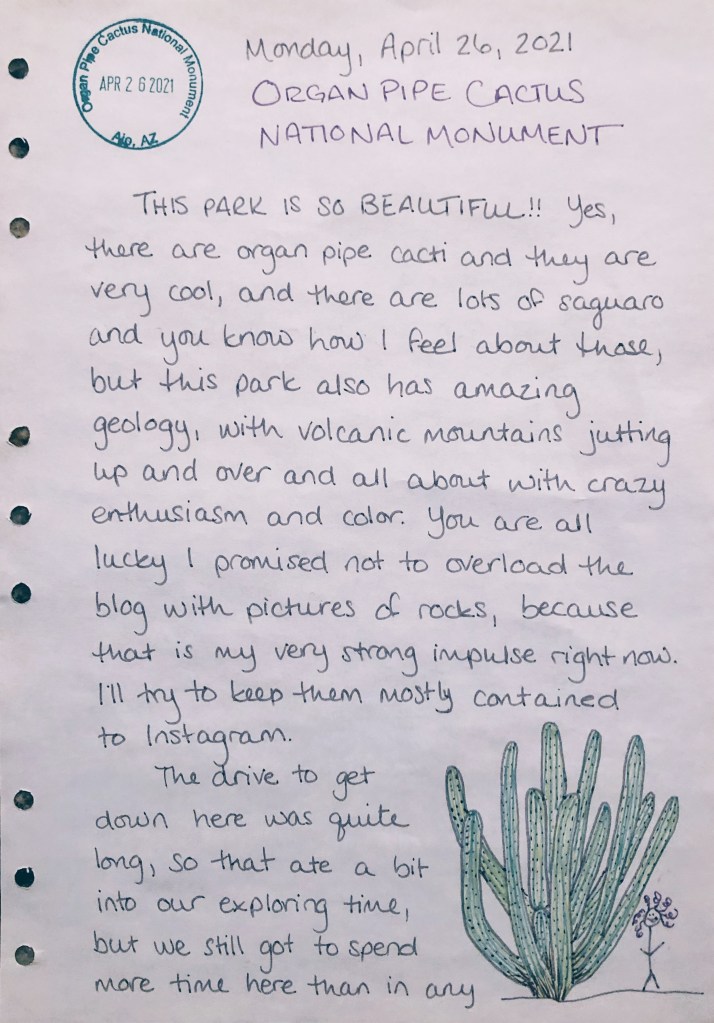 Organ Pipe Cactus National Monument
APR 26 2021
Ajo, AZ
Monday, April 26, 2021
ORGAN PIPE CACTUS
NATIONAL MONUMENT
THIS PARK IS SO BEAUTIFUL!! Yes,
there are organ pipe cacti and they are
very cool, and there are lots of saguaro
and you know how I feel about those,
but this park also has amazing
geology, with volcanic mountains jutting
up and over and all about with crazy
enthusiasm and color. You are all
lucky I promised not to overload the
blog with pictures of rocks, because
that is my very strong impulse right now.
I'll try to keep them mostly contained
to Instagram.
The drive to get
down here was quite
long, so that ate a bit
into our exploring time,
but we still got to spend
more time here than in any